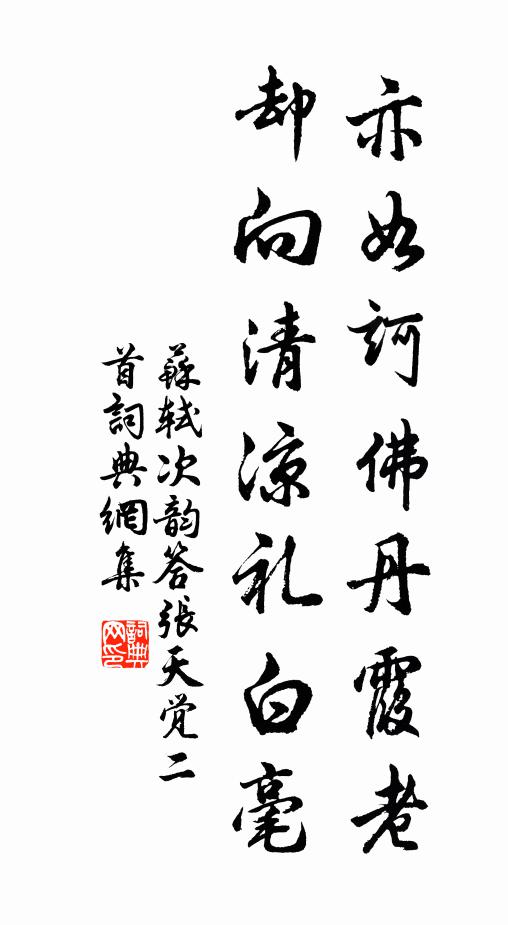 亦如訶佛丹霞老
却向清凉礼白毫
蘇軾次韵答張天觉二
首詞典網集
詞典
网印